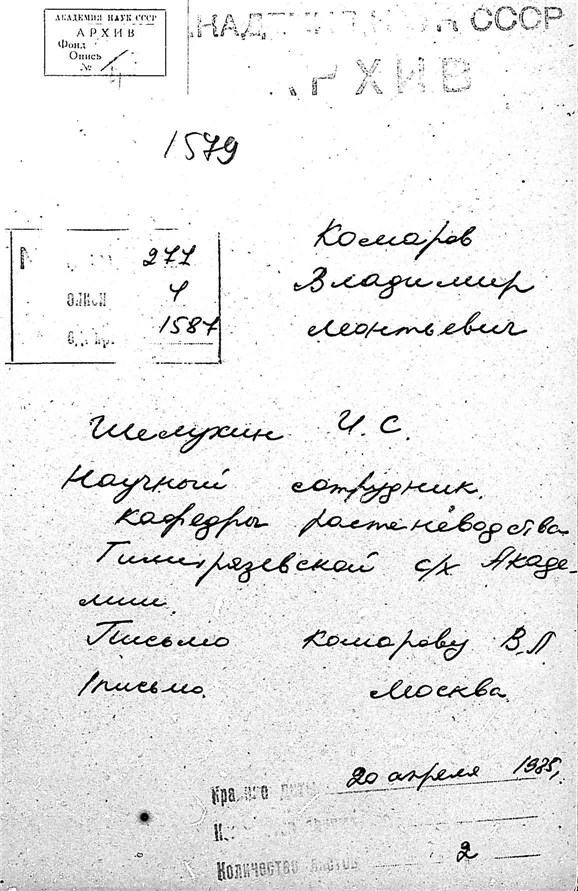 АКАДЕМИЯ НАУК СССР
АРХИВ
Фонд
Опись
№ 4
СССР
АРХИВ
1579
277
опись 4
1587
Комаров
Владимир
Леонтьевич
Шелухин И.С.
Научный сотрудник
кафедры растеневодства
Тимирязевской с/х Акаде-
мии.
Письмо Комарову В.Л
1 письмо. Москва.
20 апреля
Количество листов 2